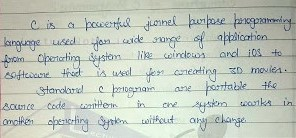 C is a powerful purpose programming
language used for wide range of application
from Operating System like windows and iOS to
software that is used for creating 3D movies.
Standard C program are portable the
source code written in one system works in
another operating system without any change